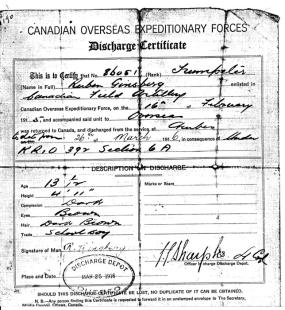 CANADIAN OVERSEAS EXPEDITIONARY FORCES
Discharge Certificate
This is to Certify that No. 86051 (Rank) Trumpeter
(Name in Full) Reuben Ginsberg enlisted in
Canadian Field Artillery
Canadian Overseas Expeditionary Force, on the 16th February
191 5, and accompanied said unit to Overseas
was returned to Canada, and discharged from the service at Quebec
26th March 1916, in consequence of Under
K.R.O 392 Section 6 A
DESCRIPTION ON DISCHARGE
Age 13 1/2 Marks or Scars
Height 4' 11"
Complexion Dark
Eyes Brown
Hair Dark Brown
Trade School boy
Signature of Man R. Ginsberg
Officer in charge Discharge Depot.
DISCHARGE DEPOT
Place and Date MAR 25 1916
SHOULD THIS CERTIFICATE BE LOST, NO DUPLICATE OF IT CAN BE OBTAINED.
N.B.—Any person finding this Certificate is requested to forward it in an unstamped envelope to The Secretary,
Militia Council, Ottawa, Canada.